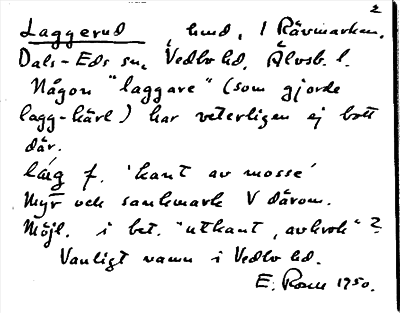 2
Laggerud, hmd, i Rävmarken,
Dals-Eds sn, Vedbo hd, Älvsb. l.
Någon "laggare" (som gjorde
lagg-kärl) har veterligen ej bott
där.
lág f. 'kant av mosse'
Myr och sankmark V därom.
Möjl. i bet. "utkant, avkrok"?
Vanligt namn i Vedbo hd.
E. 1950.